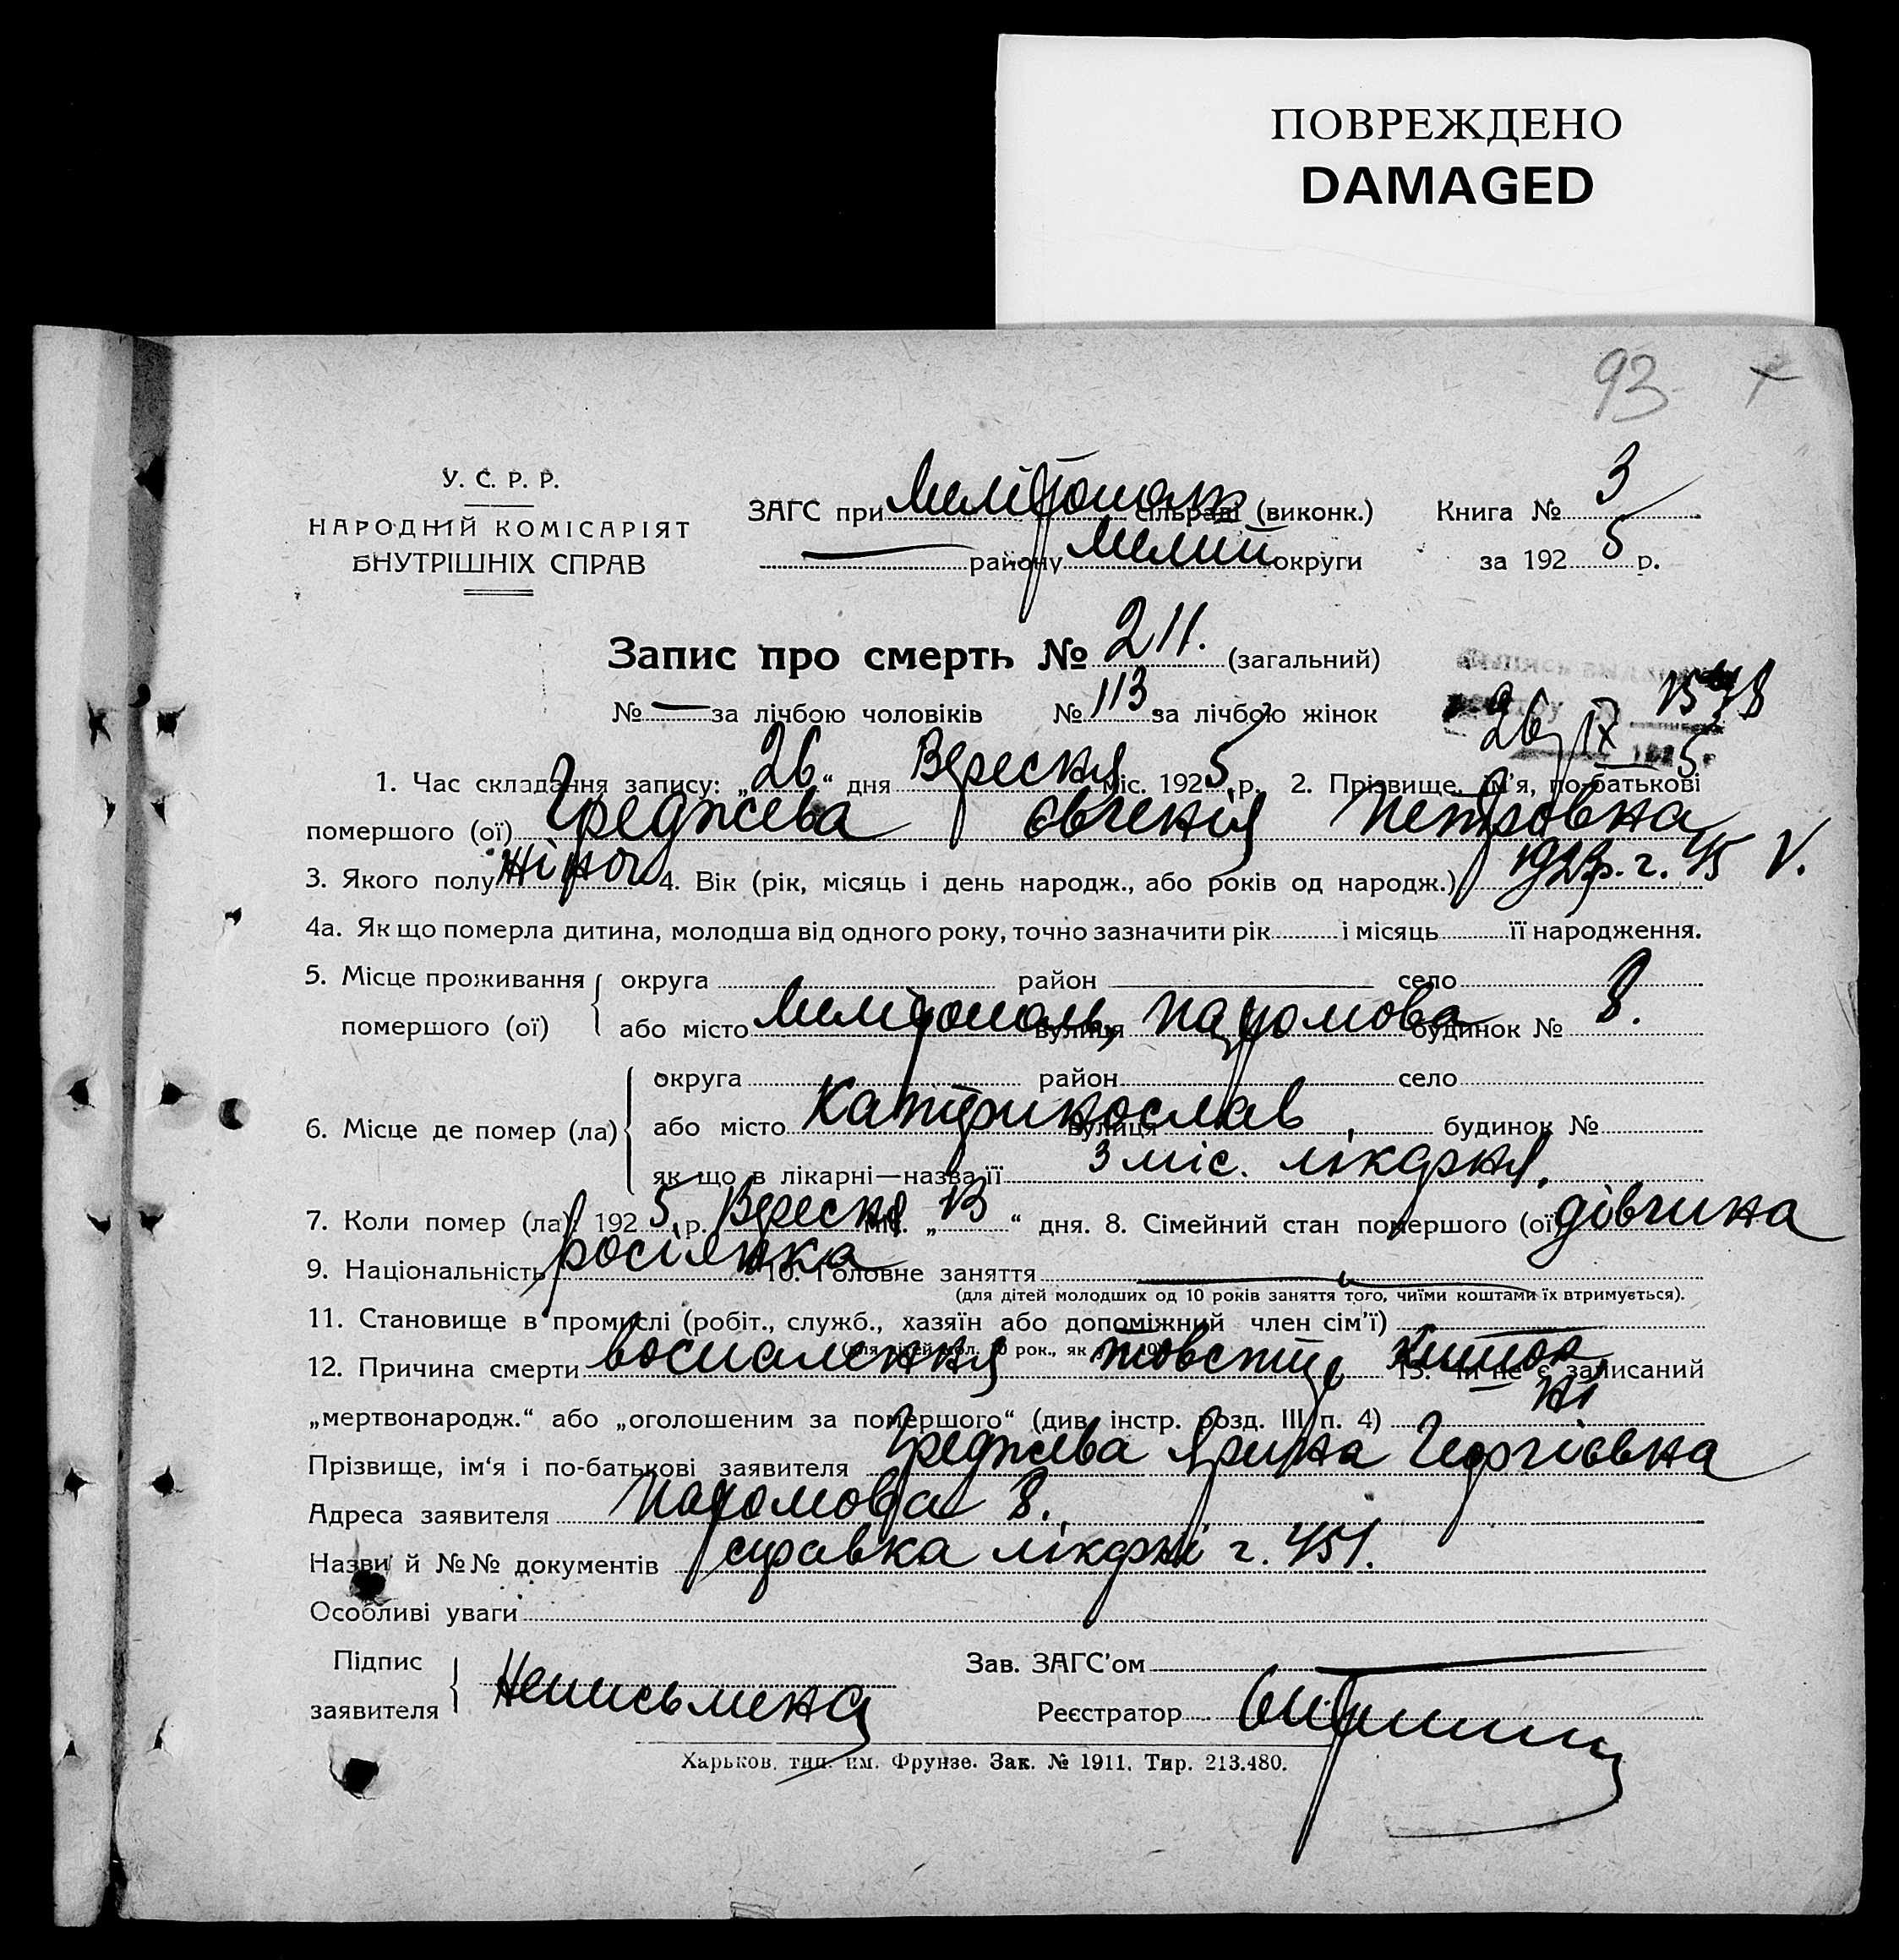 ПОВРЕЖДЕНО
DAMAGED
93
У. С. Р. Р.
НАРОДНІЙ КОМІСАРІЯТ
ВНУТРІШНІХ СПРАВ
ЗАГС при сільраді (виконк.)
району округи
Книга № 3
за 1925 р.
Запис про смерть № 211. (загальний)
№ — за лічбою чоловіків № 113 за лічбою жінок
26 IX 5
1. Час складання запису: „26“ дня Вересня міс. 1925 р. 2. Прізвище, ім'я, по-батькові
помершого (ої) Греджева Євгенія Петровна
3. Якого полу жіноч 4. Вік (рік, місяць і день народж., або років од народж.) V.
4а. Як що померла дитина, молодша від одного року, точно зазначити рік і місяць її народження.
5. Місце проживання округа район село
помершого (ої) або місто Мелітополь, вулиця Пахомова будинок № 8.
6. Місце де помер (ла) округа район село
або місто Катеринослав, вулиця будинок №
як що в лікарні—назва її 3 міс. лікарня.
7. Коли помер (ла): 1925 р. Вересня міс. „13“ дня. 8. Сімейний стан помершого (ої) дівчина
9. Національність росіянка 10. Головне заняття
(для дітей молодших од 10 років заняття того, чиїми коштами їх втримується).
11. Становище в промислі (робіт., служб., хазяїн або допоміжний член сім'ї)
12. Причина смерти воспалення товстих кишок 13. Чи не є записаний
„мертвонародж.“ або „оголошеним за помершого“ (див. інстр. розд. III п. 4) ні
Прізвище, ім'я і по-батькові заявителя Греджева Ярина Георгієвна
Адреса заявителя Пахомова 8.
Назви й №№ документів справка лікарні г. 451.
Особливі уваги
Підпис
заявителя Неписьмена
Зав. ЗАГС'ом
Реєстратор
Харьков. тип. им. Фрунзе. Зак. № 1911. Тир. 213.480.